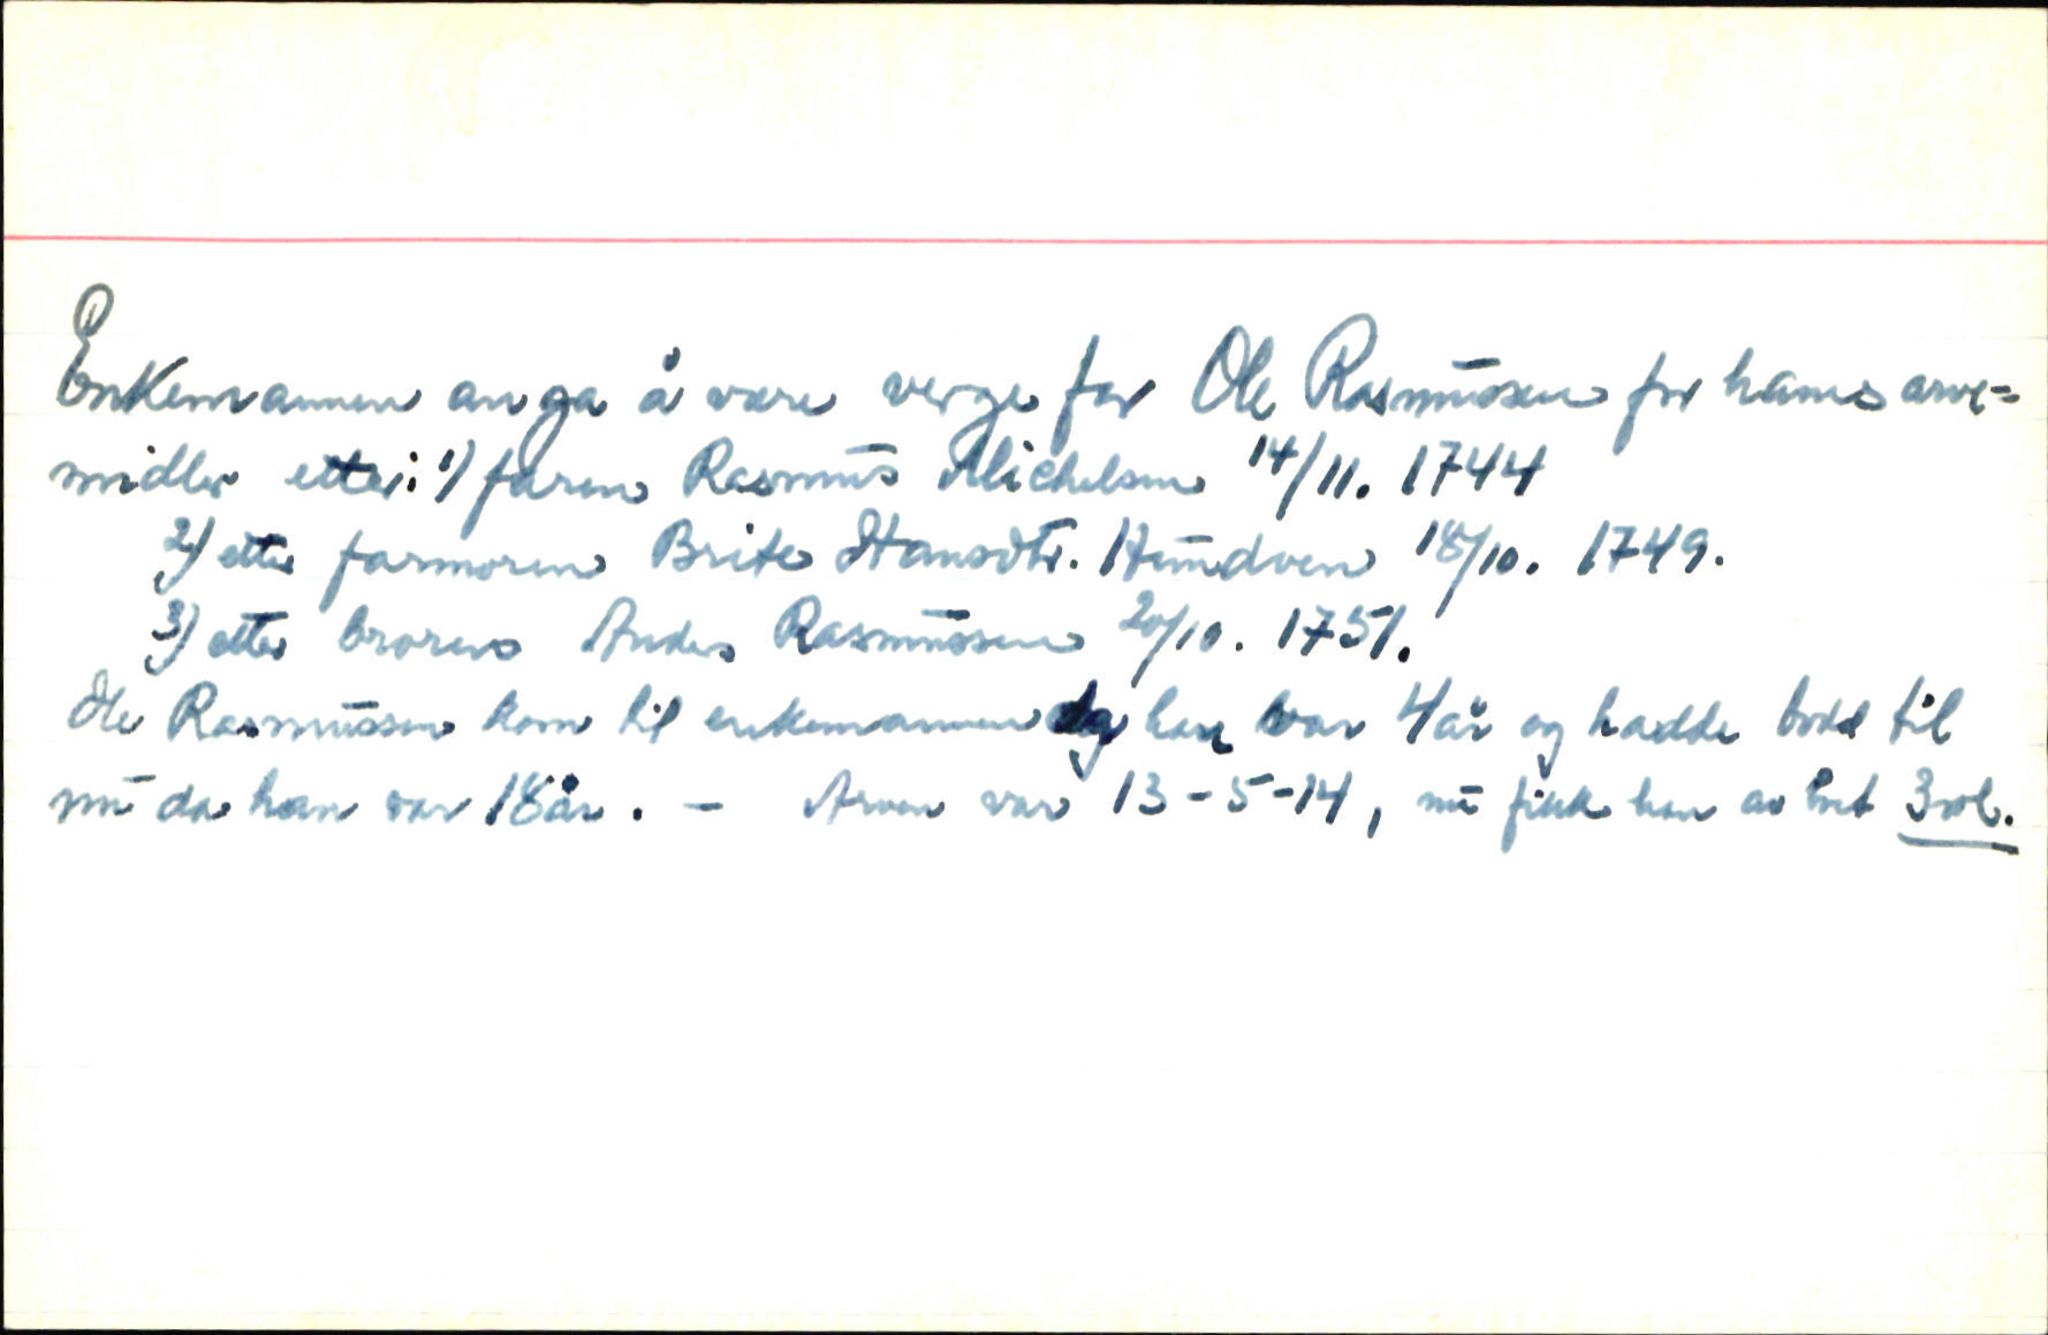 Enkemannen anga å være verge for Ole Rasmussen for hans arve=
midler etter: 1) faren Rasmus Michelsen 14/11. 1744
2) etter farmoren Brite Hansdtr. Hundven 18/10. 1749.
3) etter broren Anders Rasmussen 20/10. 1751.
Ole Rasmussen kom til enkemannen da han var 4 år og hadde bodd til
nu da han var 18 år. - Arven var 13-5-14, nu fikk han av boet 3 rdl.